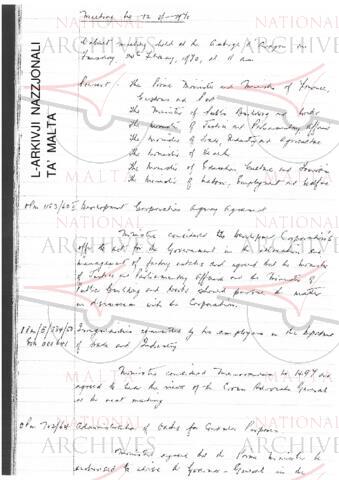 Meeting No 12 of 1970
Cabinet meeting held at the Auberge d'Aragon on
Tuesday, 24th February, 1970, at 11 am
Present: The Prime Minister and Minister of Finance,
Customs and Port
The Minister of Public Building and Works
The Minister of Justice and Parliamentary Affairs
The Minister of Trade, Industry and Agriculture
The Minister of Health
The Minister of Education, Culture and Tourism
The Minister of Labour, Employment and Welfare
OPM Development Corporation Agency Agreement
Ministers considered the Development Corporation's
offer to act for the Government in the
management of factory estates and agreed that the Minister
of Justice and Parliamentary Affairs and the Minister of
Public Building and Works should pursue the matter
in discussion with the Corporation.
Irregularities committed by two employees in the Department
of Trade and Industry
Ministers considered Memorandum No 1497 and
agreed to hear the views of the Crown Advocate General
at the next meeting
OPM 702/64 Administration of Oaths for Customs Purposes
Ministers agreed that the Prime Minister be
authorised to advise the Governor-General in the
L-ARKIVJI NAZZJONALI
TA' MALTA
NATIONAL
ARCHIVES
MALTA